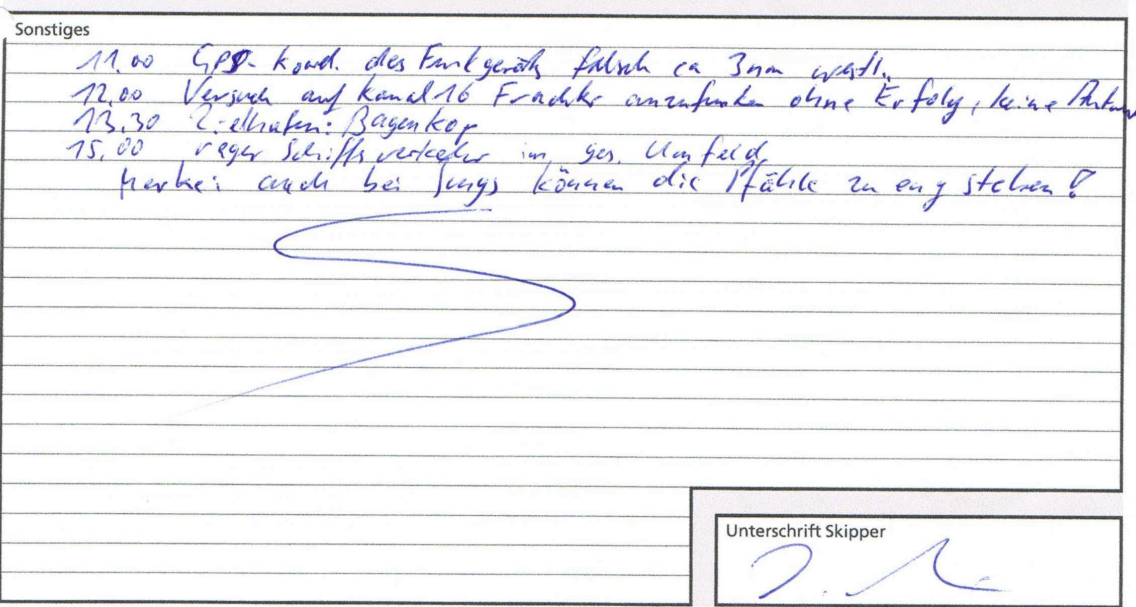 Sonstiges
11.00 GPS-Koord. des Funkgeräts falsch ca 3nm westl.
12.00 Versuch auf Kanal 16 Frachter anzufunken ohne Erfolg, keine Antw
13.30 Zielhafen: Bagenkop
15.00 reger Schiffsverkehr im ges. Umfeld
Merke: auch bei Jungs können die Pfähle zu eng stehen!
Unterschrift Skipper